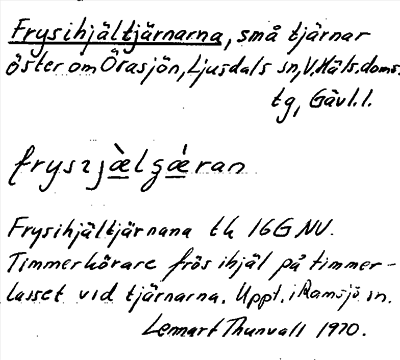 Frysihjältjärnarna, små tjärnar
öster om Örasjön, Ljusdals sn, V. Häls. doms.
tg, Gävl.l.
Frysihjältjärnana tk 16G NV.
Timmerkörare frös ihjäl på timmer-
lasset vid tjärnarna. Uppt. i Ramsjö sn.
Lennart Thunvall 1970.